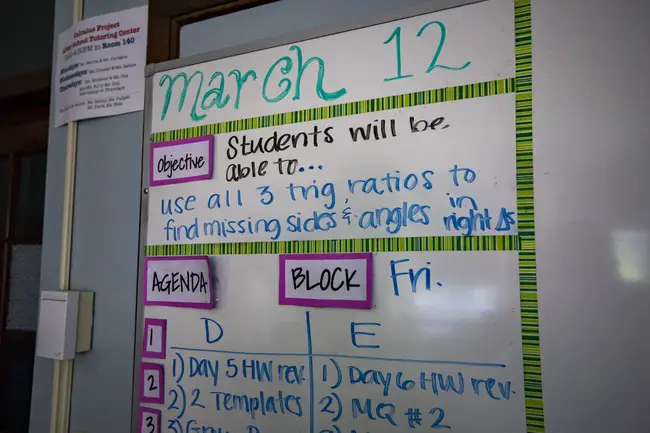 Calculus Project
After-School Tutoring Center
in Room 140
March 12
Objective
Students will be
able to...
use all 3 trig ratios to
find missing sides & angles in
right Δs
AGENDA
BLOCK
Fri.
1
D
E
2
1) Day 5 HW rev.
1) Day 6 HW rev.
2) 2 Templates
2) MQ #2
3